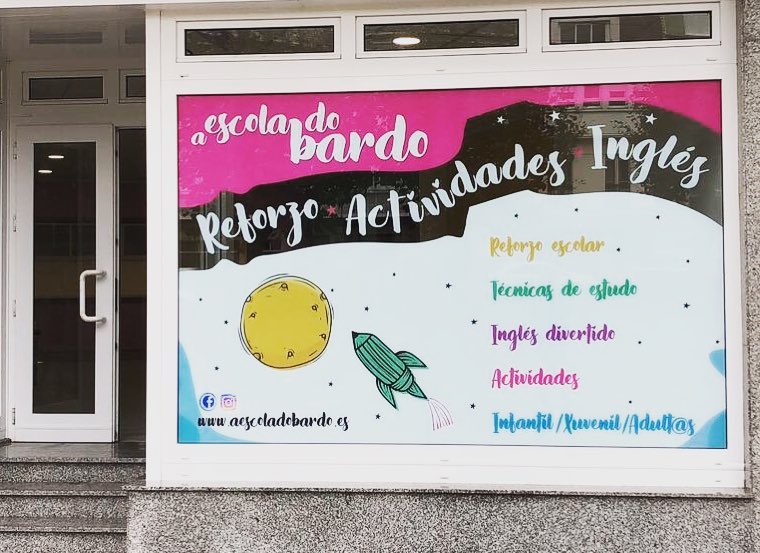 a escola do
bardo
Reforzo ★ Actividades ★ Inglés
Reforzo escolar
Técnicas de estudo
Inglés divertido
Actividades
Infantil/Xuvenil/Adult@s
www.aescoladobardo.es